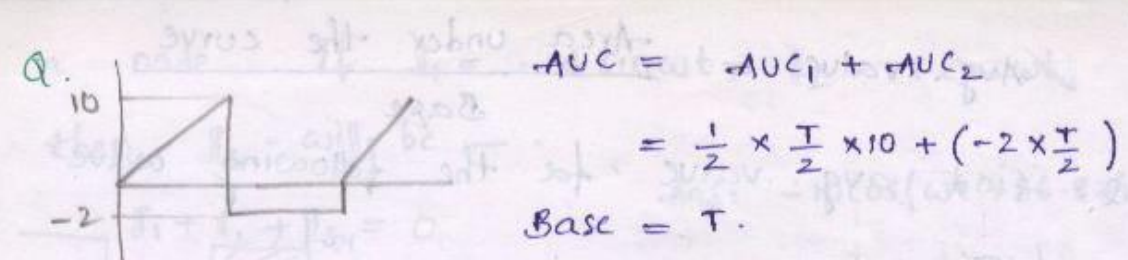 Q.
10
-2
AUC = AUC₁ + AUC₂
= 1/2 × T/2 × 10 + (-2 × T/2)
Base = T.